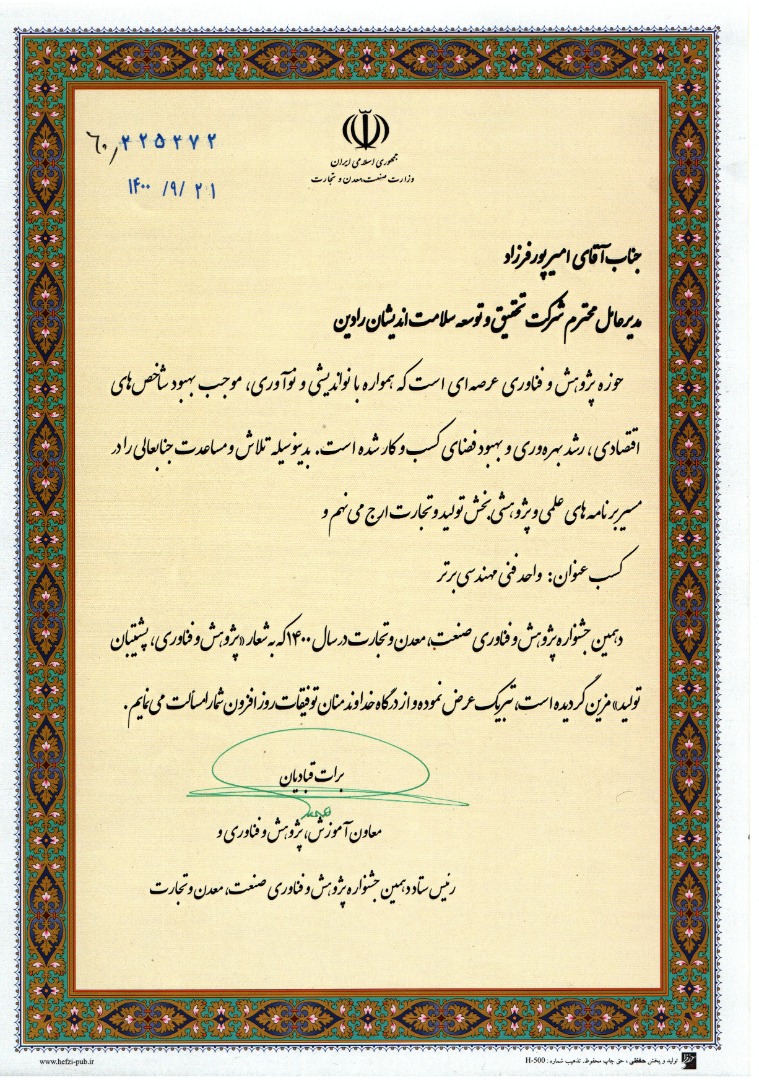 ۶۰/۲۲۵۲۷۲
۱۴۰۰/۹/۲۱
جمهوری اسلامی ایران
وزارت صنعت، معدن و تجارت
جناب آقای امیر پورفرزاد
مدیرعامل محترم شرکت تحقیق و توسعه سلامت اندیشان رادین
حوزه پژوهش و فناوری عرصه ای است که همواره با نواندیشی و نوآوری، موجب بهبود شاخص های
اقتصادی، رشد بهره‌وری و بهبود فضای کسب و کار شده است. بدینوسیله تلاش و مساعدت جنابعالی را در
مسیر برنامه های علمی و پژوهشی بخش تولید و تجارت ارج می نهم و
کسب عنوان: واحد فنی مهندسی برتر
دهمین جشنواره پژوهش و فناوری صنعت، معدن و تجارت در سال ۱۴۰۰ که به شعار «پژوهش و فناوری، پشتیبان
تولید» مزین گردیده است، تبریک عرض نموده و از درگاه خداوند منان توفیقات روز افزون شما را مسألت می نمایم.
برات قبادیان
معاون آموزش، پژوهش و فناوری و
رئیس ستاد دهمین جشنواره پژوهش و فناوری صنعت، معدن و تجارت
www.hefzi-pub.ir
تولید و پخش حفظی، حق چاپ محفوظ. تذهیب شماره: H-500